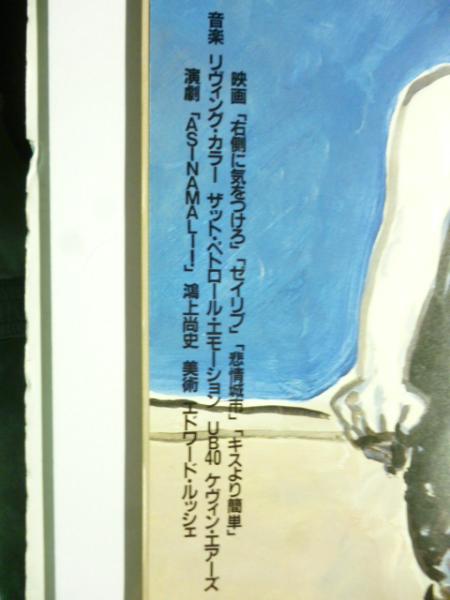 映画「右側に気をつけろ」「ゼイリブ」「悲情城市」「キスより簡単」
音楽 リヴィング・カラー ザット・ペトロール・エモーション UB40 ケヴィン・エアーズ
演劇「ASINAMALI!」鴻上尚史 美術 エドワード・ルッシェ